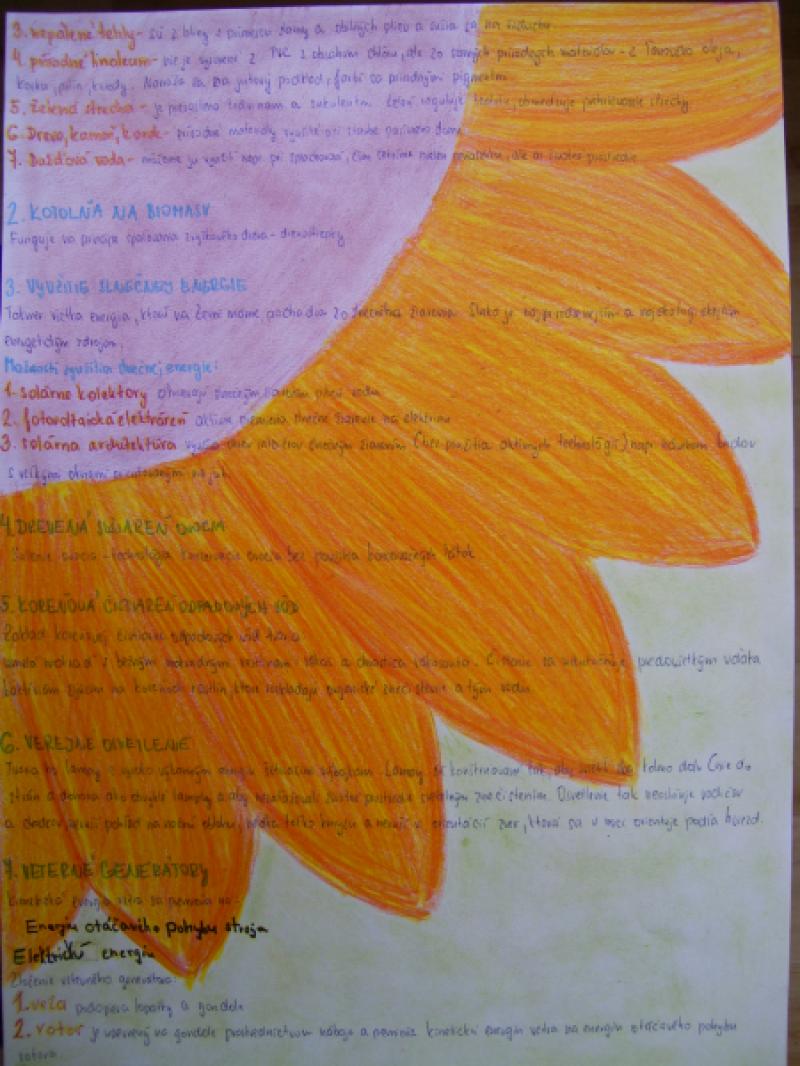 3. nepálené tehly - sú z hliny s prímesou slamy a obilných pliev a sušia sa na vzduchu.
4. prírodné linoleum - nie je vyrobené z PVC s obsahom chlóru, ale zo samých prírodných materiálov - z ľanového oleja,
korku, pilín, kriedy. Nanáša sa na jutový podklad, farbí sa prírodnými pigmentmi
5. Zelená strecha - je porastená trávinami a sukulentmi. Zeleň reguluje teplotu, obmedzuje prehrievanie strechy
6. Drevo, kameň, korok - prírodné materiály využité pri stavbe pasívneho domu
7. Dažďová voda - môžeme ju využiť napr. pri splachovaní, čím šetríme nielen peňaženku, ale aj životné prostredie
2. KOTOLŇA NA BIOMASU
Funguje na princípe spaľovania zvyškového dreva - drevoštiepky
3. VYUŽITIE SLNEČNEJ ENERGIE
Takmer všetka energia, ktorú na Zemi máme pochádza zo slnečného žiarenia. Slnko je najprirodzenejším a najekologickejším
energetickým zdrojom.
Možnosti využitia slnečnej energie:
1. solárne kolektory ohrievajú slnečným žiarením pitnú vodu
2. fotovoltaická elektráreň aktívne premieňa slnečné žiarenie na elektrinu
3. solárna architektúra využíva ohrev interiérov slnečným žiarením (bez použitia aktívnych technológií) napr. budov
s veľkými oknami orientovanými na juh.
4. DREVENÁ SUŠIAREŇ OVOCIA
Sušenie ovocia - technológia konzervácie ovocia bez použitia konzervačných látok
5. KOREŇOVÁ ČISTIAREŇ ODPADOVÝCH VÔD
Základ koreňovej čistiarne odpadových vôd tvorí
umelá mokraď s bežnými mokraďnými rastlinami. Čistenie sa uskutočňuje predovšetkým vďaka
baktériám žijúcim na koreňoch rastlín, ktoré rozkladajú organické znečistenie a tým vodu
6. VEREJNÉ OSVETLENIE
Tvoria ho lampy s vysoko výkonnými energiu šetriacimi výbojkami. Lampy sú konštruované tak, aby svietili iba kolmo dolu (nie do
strán a dohora ako obvyklé lampy) a aby nezaťažovali životné prostredie svetelným znečistením. Osvetlenie tak neoslňuje vodičov
a chodcov, neruší pohľad na nočnú oblohu, šetrí veľa energie a neruší v orientácii zver, ktorá sa v noci orientuje podľa hviezd.
7. VETERNÉ GENERÁTORY
Kinetická energia vetra sa premieňa na:
Energiu otáčavého pohybu stroja
Elektrickú energiu
Zloženie veterného generátora:
1. veža podopiera lopatky a gondolu
2. rotor je upevnený na gondole prostredníctvom náboja a premieňa kinetickú energiu vetra na energiu otáčavého pohybu
rotora.